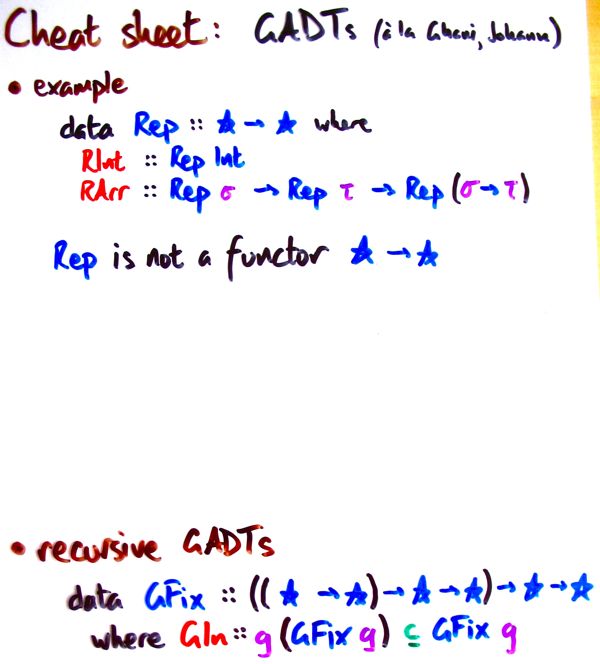 Cheat sheet: GADTs (à la Ghani, Johann)
• example
data Rep :: ★ → ★ where
RInt :: Rep Int
RArr :: Rep σ → Rep τ → Rep (σ → τ)
Rep is not a functor ★ → ★
• recursive GADTs
data GFix :: ((★ → ★) → ★ → ★) → ★ → ★
where GIn :: g (GFix g) ⊆ GFix g